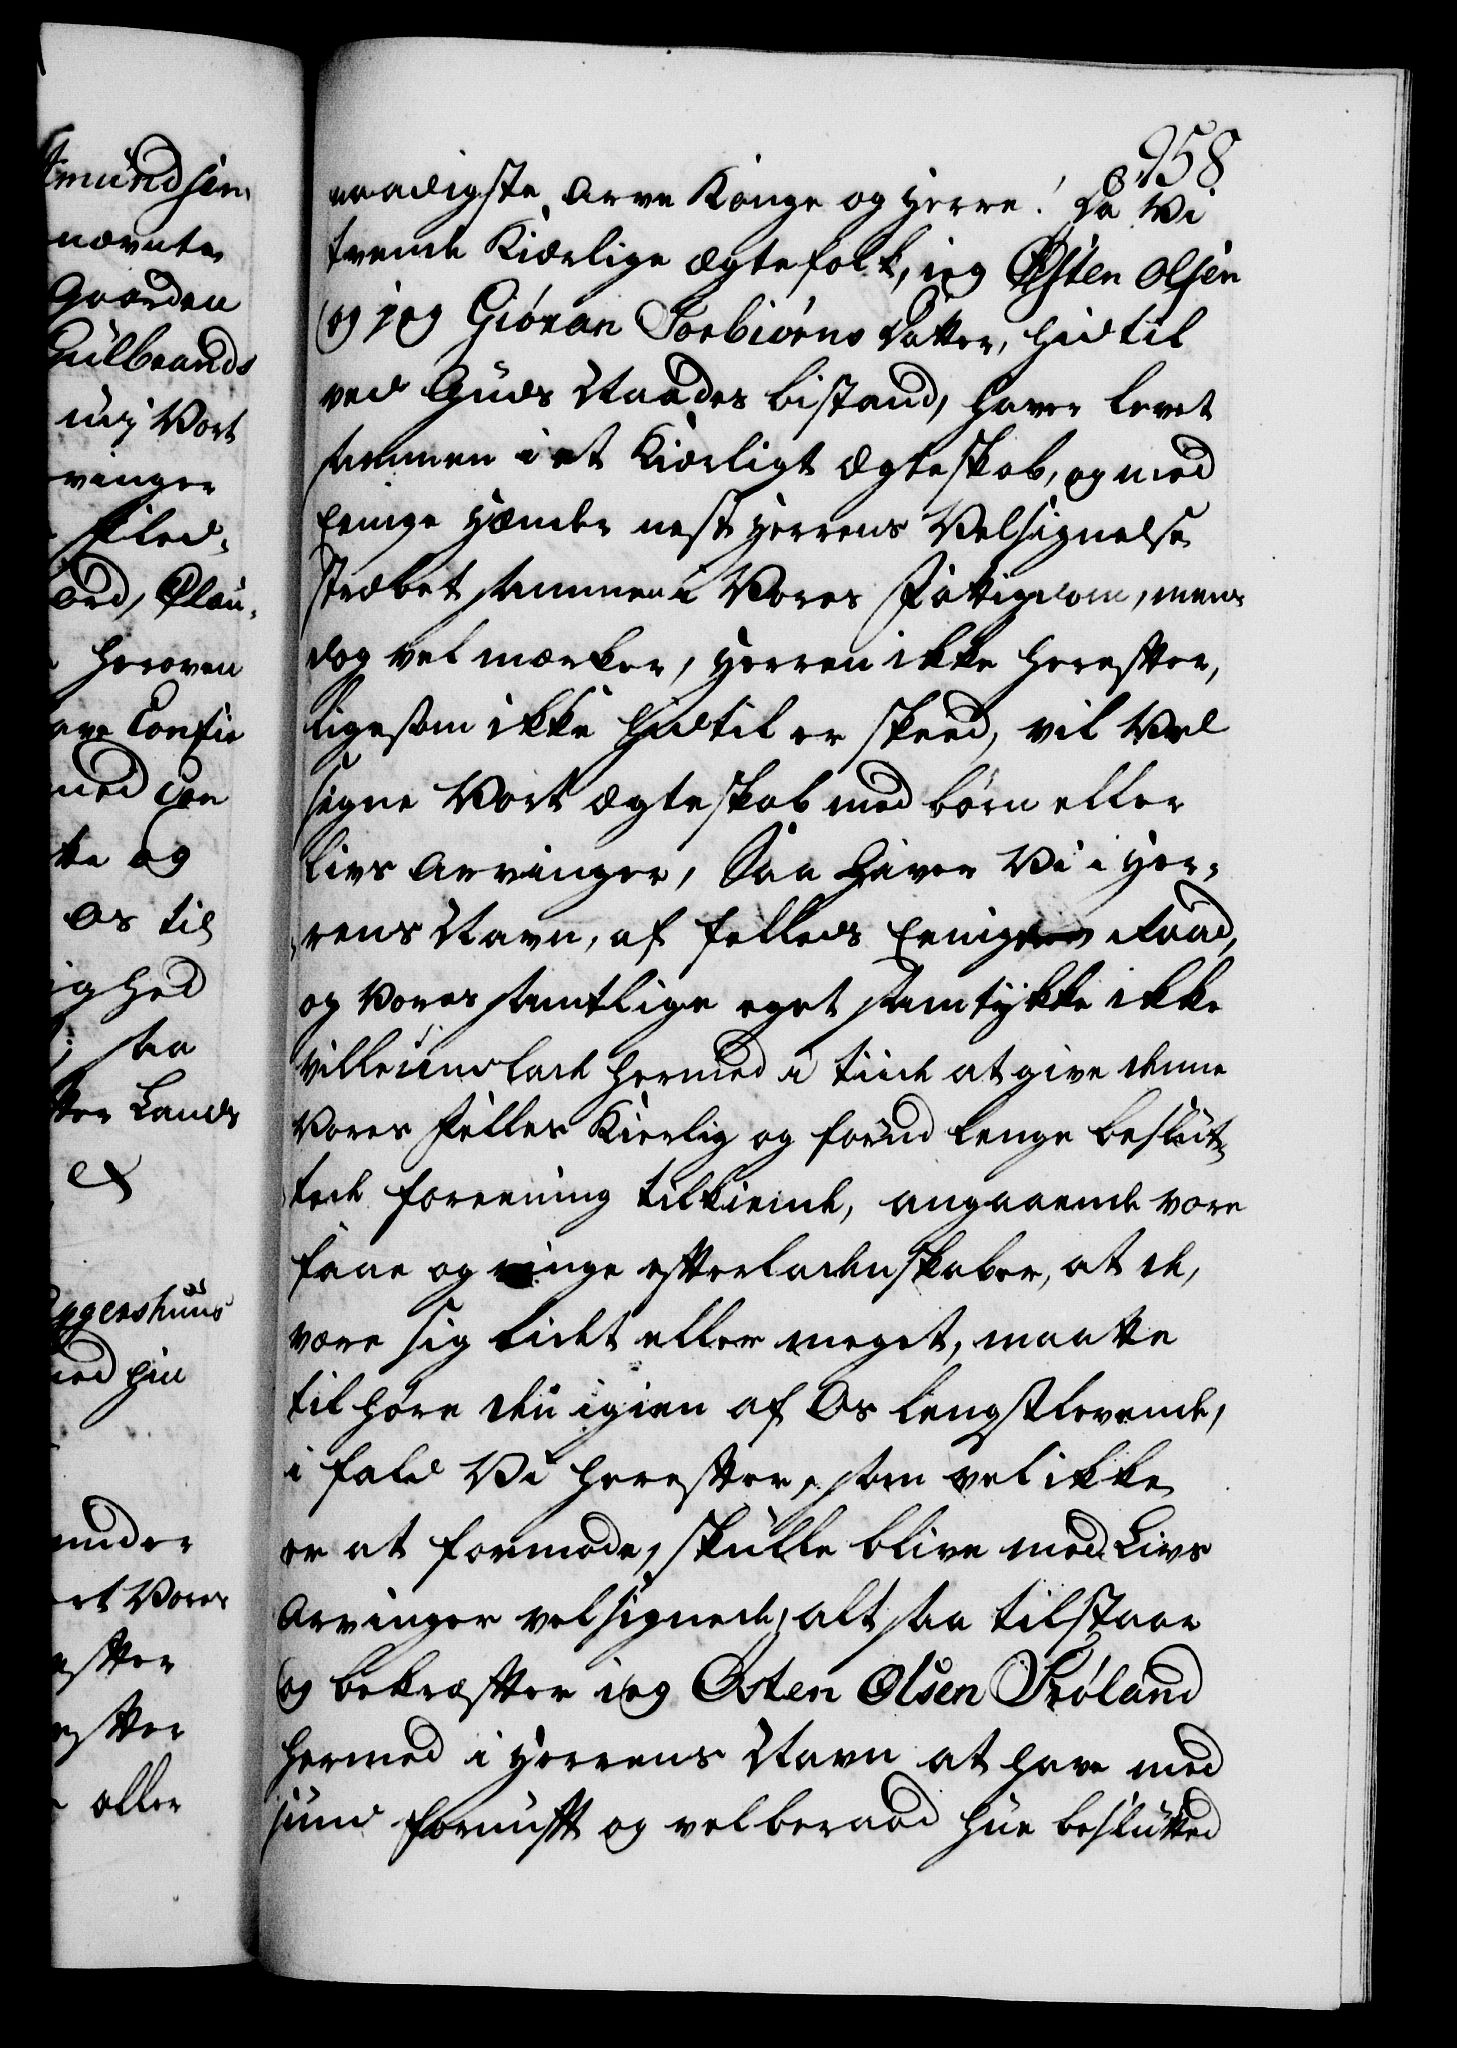 958
naadigste Arve Konge og Herre! Da Vi
tvende Kiærlige Ægtefolk, ieg Østen Olsen
og jeg Giøran Torbiørns Datter, hidtil
ved Guds Naades bistand, haver levet
sammen i et Kiærligt Ægteskab, og med
Eenige Hænder nest Herrens Velsignelse
stræbet sammen i Vores Fattigdom, mens
dog vel mærker, Herren ikke herefter,
ligesom ikke hidtil er skeed, vil Vel
signe Vort Ægteskab med børn eller
Livs Arvinger, Saa haver Vi i Her-
rens Navn, af felleds Eenig Raad,
og Vores samtlige eget samtykke ikke
ville undlade hermed i tiide at give denne
Vores felles Kierlig og forud lenge beslut-
tede foreening tilkiende, angaaende vore
faae og ringe efterladenskaber, at de,
være sig lidet eller meget, maatte
tilhøre den igien af Os lengstlevende,
i fald Vi herefter, som vel ikke
er at formode, skulle blive med Livs
Arvinger velsignede; alt saa tilstaar
og bekræfter ieg Osten Olsen Frøland
hermed i Herrens Navn at have med
sund fornuft og velberaad hue beslutted
Amundsen
nævnte
Gaarden
Gulbrands
uij Vort
rvinger
Sted-
ord, Olau-
heroven
ave Confir
med Con
ke og
Os til
ighed
saa
ter Lands
et
Aggershuus
ved hid
under
ort Vores
efter
efter
eller